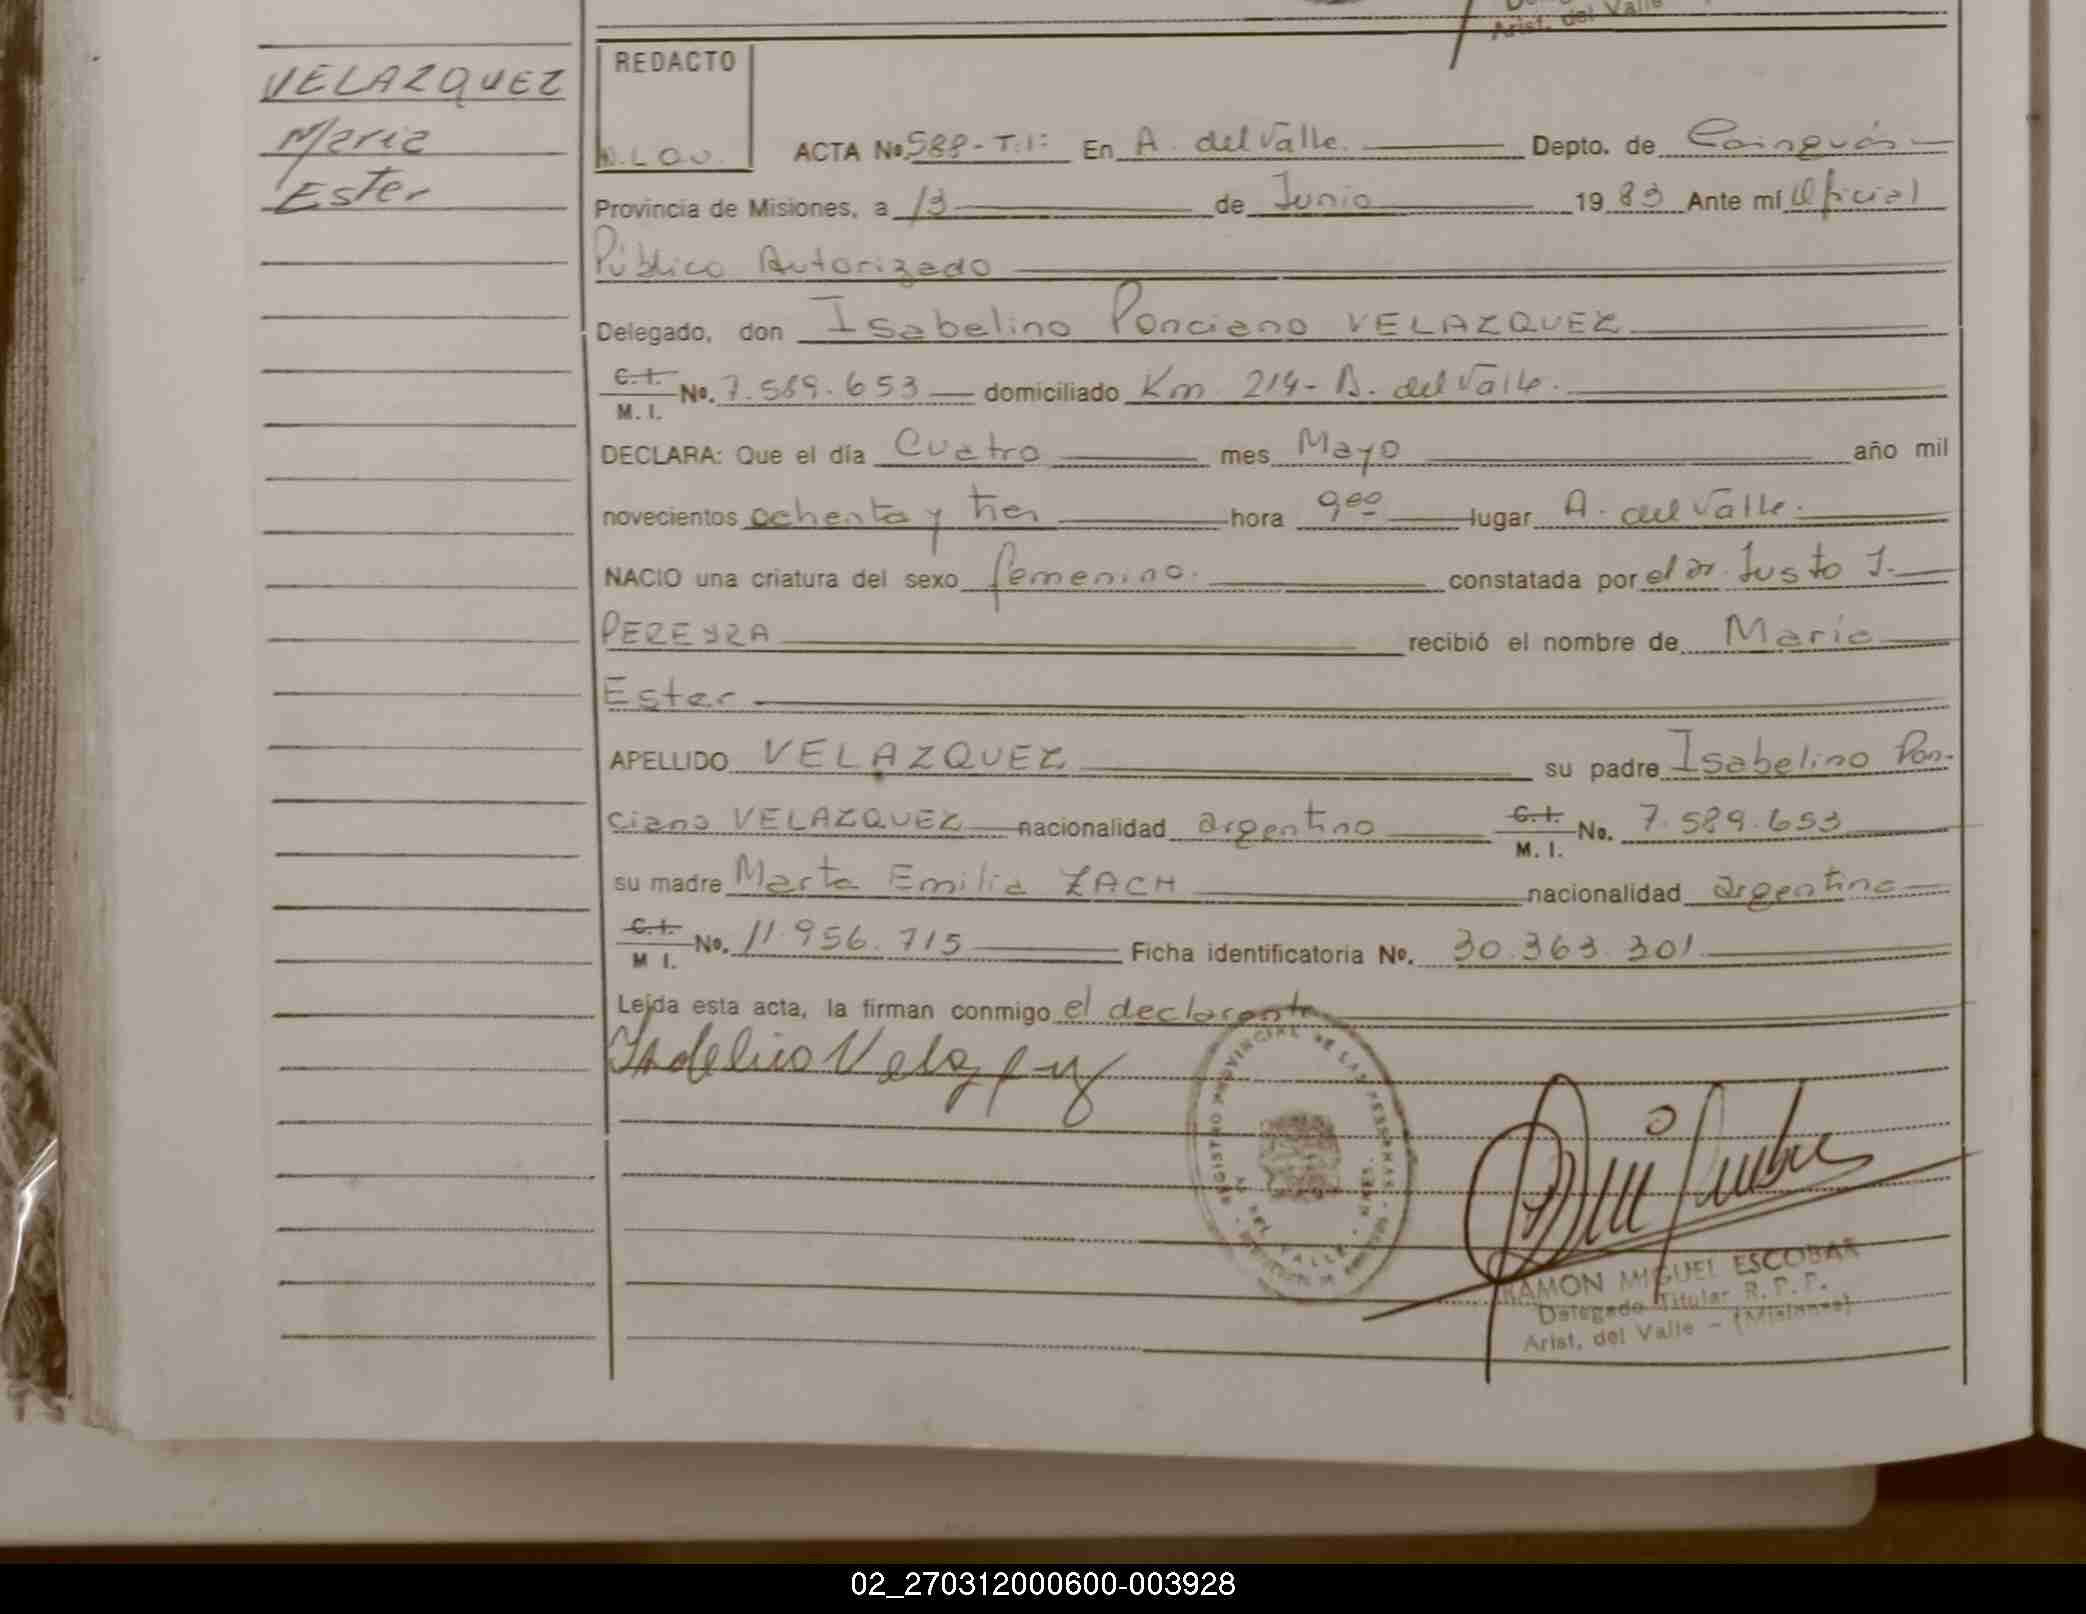 Arist. del Valle
VELAZQUEZ
Maria
Ester
REDACTO
ACTA No. 588-T.I: En A. del Valle. Depto. de Cainguás
Provincia de Misiones, a 13 de Junio 1983 Ante mí Oficial
Público Autorizado
Delegado, don Isabelino Ponciano VELAZQUEZ
C.I. M.I. No. 7.589.653 domiciliado Km 214- A. del Valle.
DECLARA: Que el día Cuatro mes Mayo año mil
novecientos ochenta y tres hora 9 00 lugar A. del Valle.
NACIO una criatura del sexo femenino. constatada por el dr. Justo J.
PEREYRA recibió el nombre de Maria
Ester
APELLIDO VELAZQUEZ su padre Isabelino Pon-
ciano VELAZQUEZ nacionalidad argentino C.I. M.I. No. 7.589.653
su madre Marta Emilia ZACH nacionalidad argentina
C.I. M I. No. 11.956.715 Ficha identificatoria No. 30.363.301
Leída esta acta, la firman conmigo el declarante
REGISTRO PROVINCIAL DE LAS PERSONAS
A. DEL VALLE
RAMON MIGUEL ESCOBAR
Delegado Titular R.P.P.
Arist. del Valle - (Misiones)
02_270312000600-003928